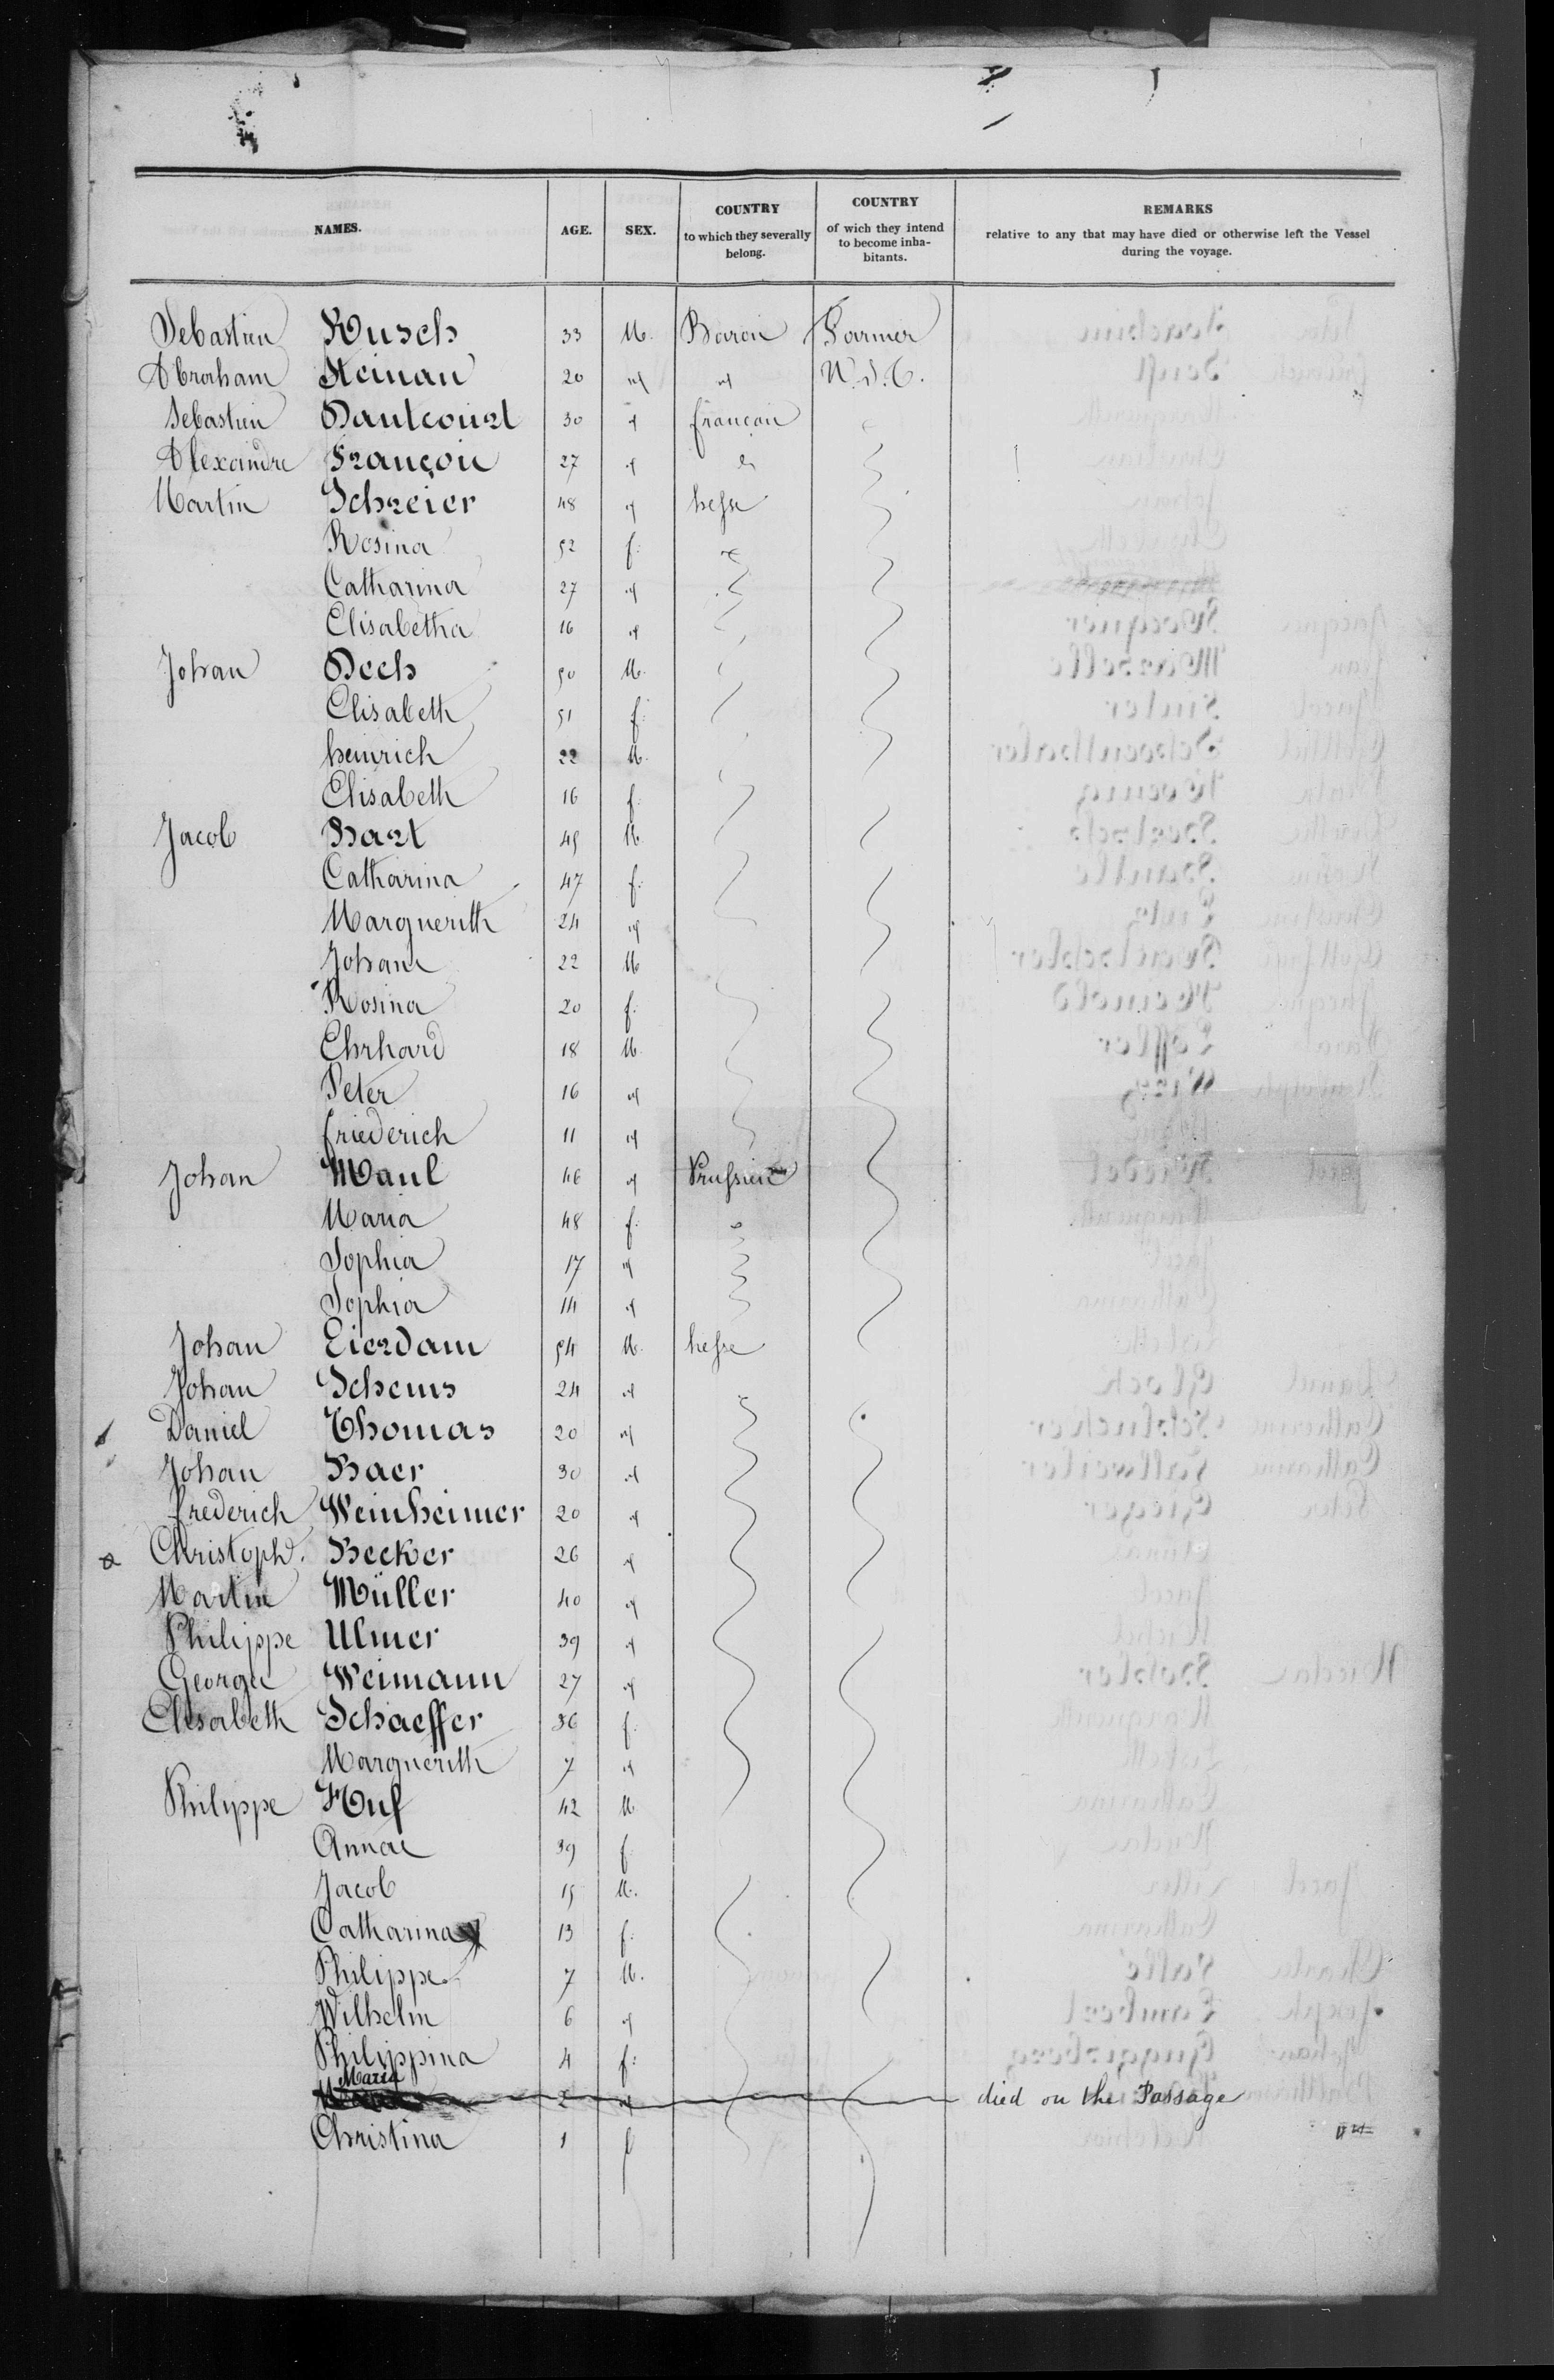 NAMES. AGE. SEX. COUNTRY to which they severally belong. COUNTRY of wich they intend to become inhabitants. REMARKS relative to any that may have died or otherwise left the Vessel during the voyage.
Sebastien Kusch 33 M. Farmer
Abraham Steinau 20 " " U.S.
Sebastien Dautcourt 30 "
Alexandre Françoii 27 "
Martin Schreier 48 " hesse
Rosina 52 f.
Catharina 27 "
Elisabetha 16 "
Johan Dech 50 M.
Elisabeth 51 f.
heinrich 22 M.
Elisabeth 16 f.
Jacob Bart 45 M.
Catharina 47 f.
Marguerith 24 "
Johann 22 M
Rosina 20 f.
Ehrhard 18 M.
Peter 16 "
friederich 11 "
Johan Maul 46 " Prussien
Maria 48 f.
Sophia 17 "
Sophia 14 "
Johan Eierdam 54 M. hesse
Johan Schems 24 "
Daniel Thomas 20 "
Johan Baer 30 "
frederich Weinheimer 20 "
Christoph. Becker 26 "
Martin Müller 40 "
Philippe Ulmer 39 "
George Weimann 27 "
Elisabeth Schaeffer 36 f.
Marguerith 7 "
Philippe Huf 42 M
Annae 39 f.
Jacob 15 M.
Catharina 13 f.
Philippe 7 M.
Wilhelm 6 "
Philippina 4 f.
Maria 2 " died on the Passage
Christina 1 f